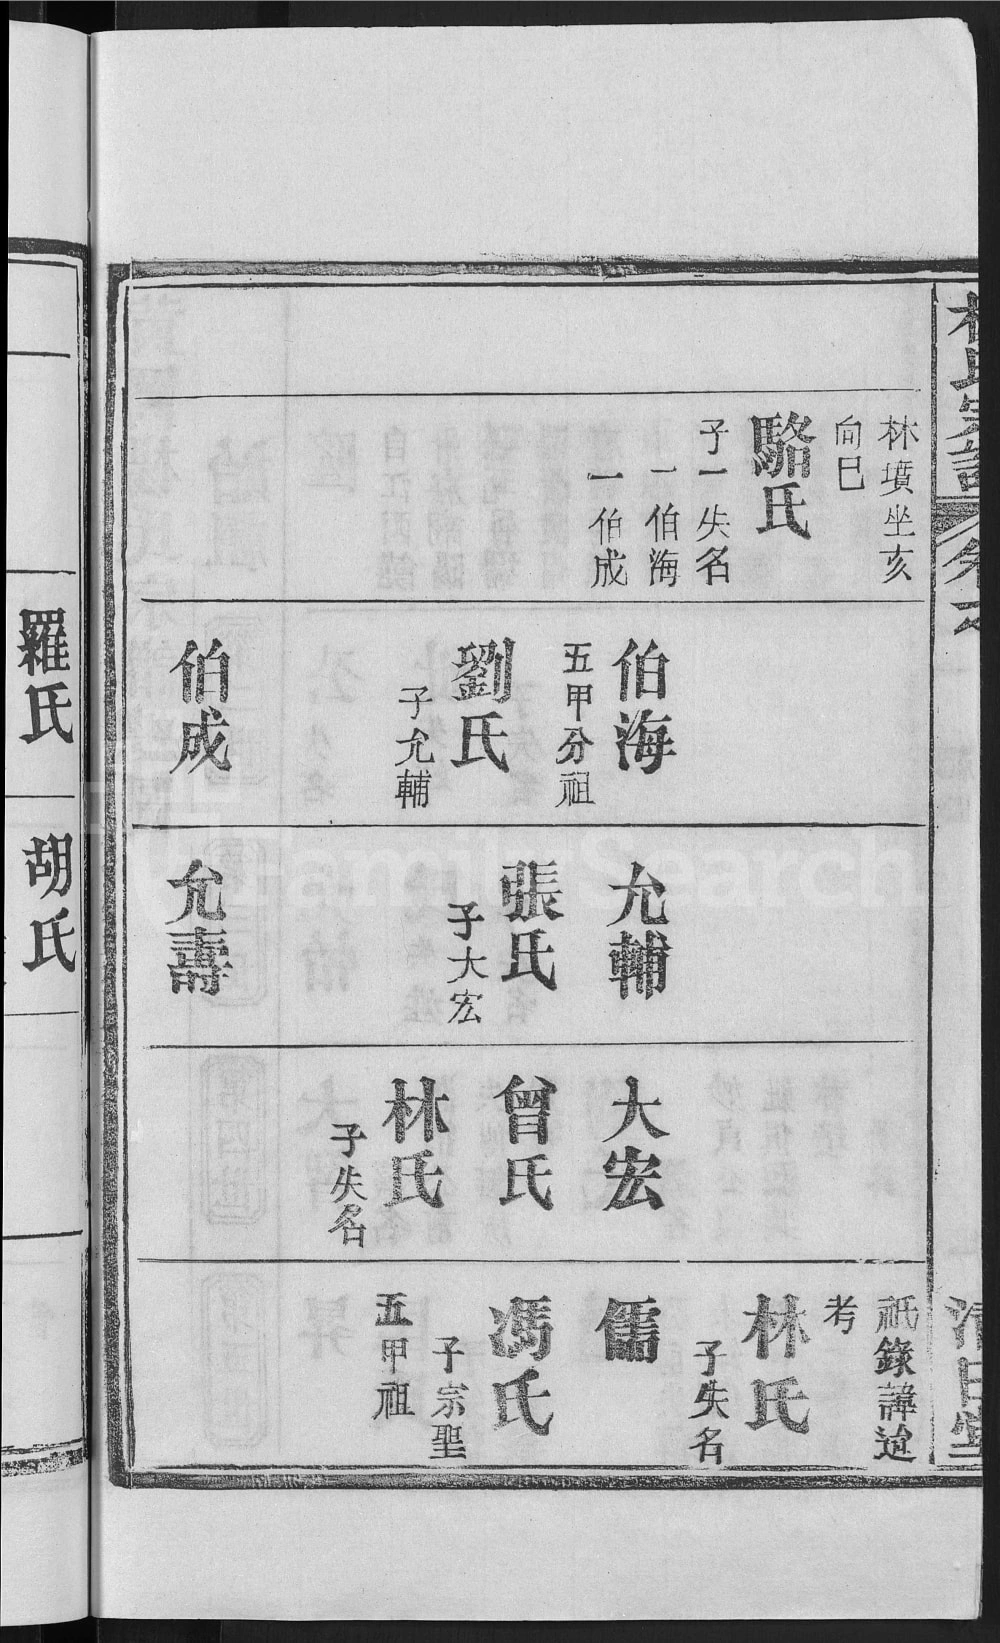 林墳坐亥
向巳
駱氏
子一失名
一伯海
一伯成
伯海
五甲分祖
劉氏
子允輔
伯成
允輔
張氏
子大宏
允壽
大宏
曾氏
林氏
子失名
祇錄諱遺
考
林氏
子失名
儒
馮氏
子宗聖
五甲祖
羅氏
胡氏